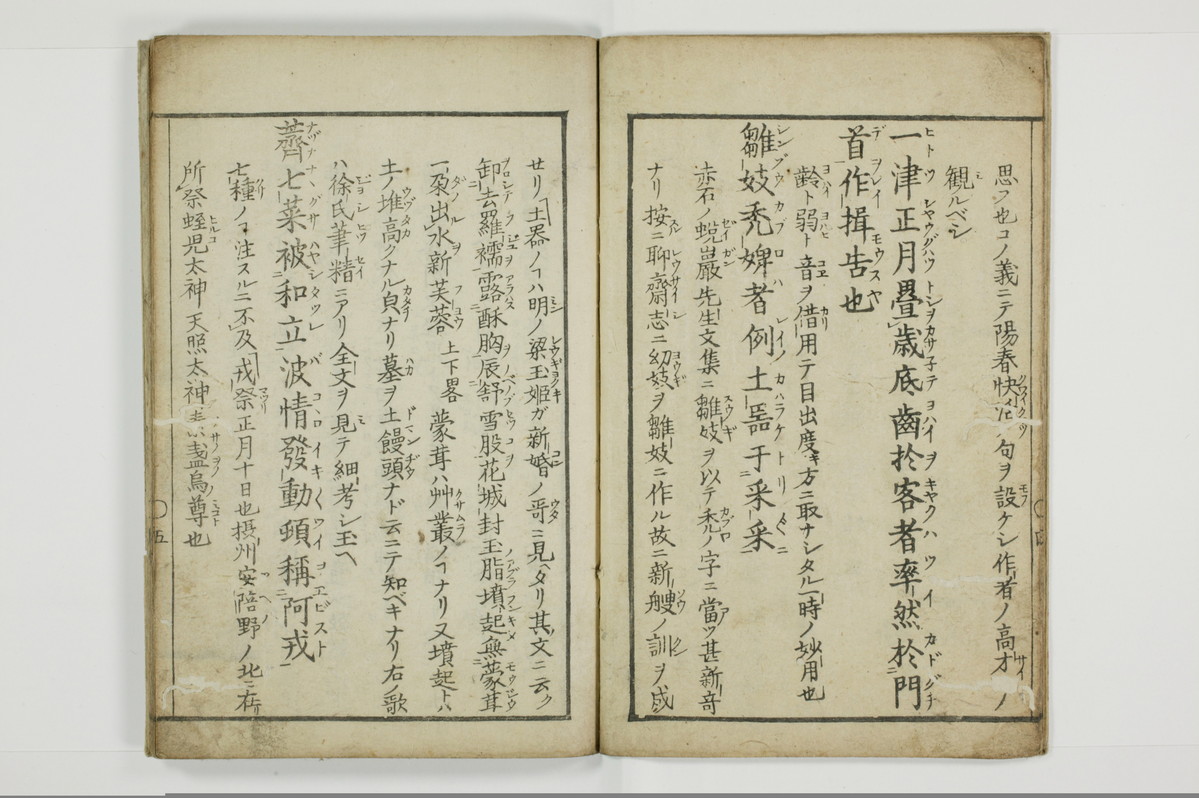 思フ也コノ義ニテ陽春快活ノ句ヲ設ケシ作者ノ高才ノ
観ルベシ
一津正月畳歳底齒於客者率然於門
首作揖告也
齢ト弱ト音ヲ借用テ目出度キ方ニ取ナシタル一時ノ妙用也
雛妓禿婢者例土噐于采采
赤石ノ蛻巖先生文集ニ雛妓ヲ以テ禿ノ字ニ當ツ甚新竒
ナリ按ニ聊齋志ニ幼妓ヲ雛妓ニ作ル故ニ新艘ノ訓ヲ成
セリ土器ノヿハ明ノ梁玉姫ガ新婚ノ哥ニ見ヘタリ其文ニ云ク
卸去羅襦露酥胸辰舒雪股花城封玉脂墳起無蒙茸
一泵出水新芙蓉 上下畧 蒙茸ハ艸叢ノヿナリ又墳起トハ
土ノ堆高クナル皃ナリ墓ヲ土饅頭ナド云ニテ知ベキナリ右ノ歌
ハ徐氏筆精ニアリ全文ヲ見テ細考シ玉ヘ
薺七菜被和立波情發動頓稱阿戎
七種ノヿ注スルニ不及戎祭正月十日也摂州安陪野ノ北ニ在リ
所祭蛭児太神 天照太神 盞烏尊也
四
五